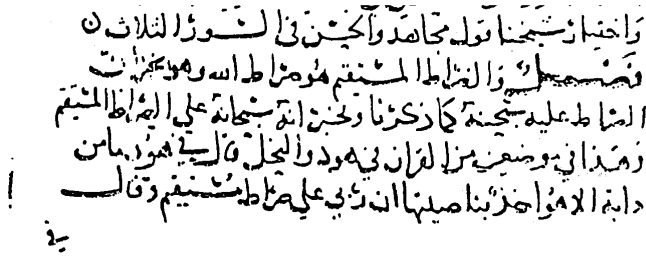 واختيار شيخنا قول مجاهد والحسن في السور الثلاث ن
فصل والصراط المستقيم هو صراط الله وهو يخبر ان
الصراط عليه سبحنه كما ذكرنا ويخبر انه سبحانه علي الصراط المستقيم
وهذا في موضعين من القران في هود والنحل قال في هود ما من
دابة الا هو اخذ بناصيتها ان ربي علي صراط مستقيم وقال
في